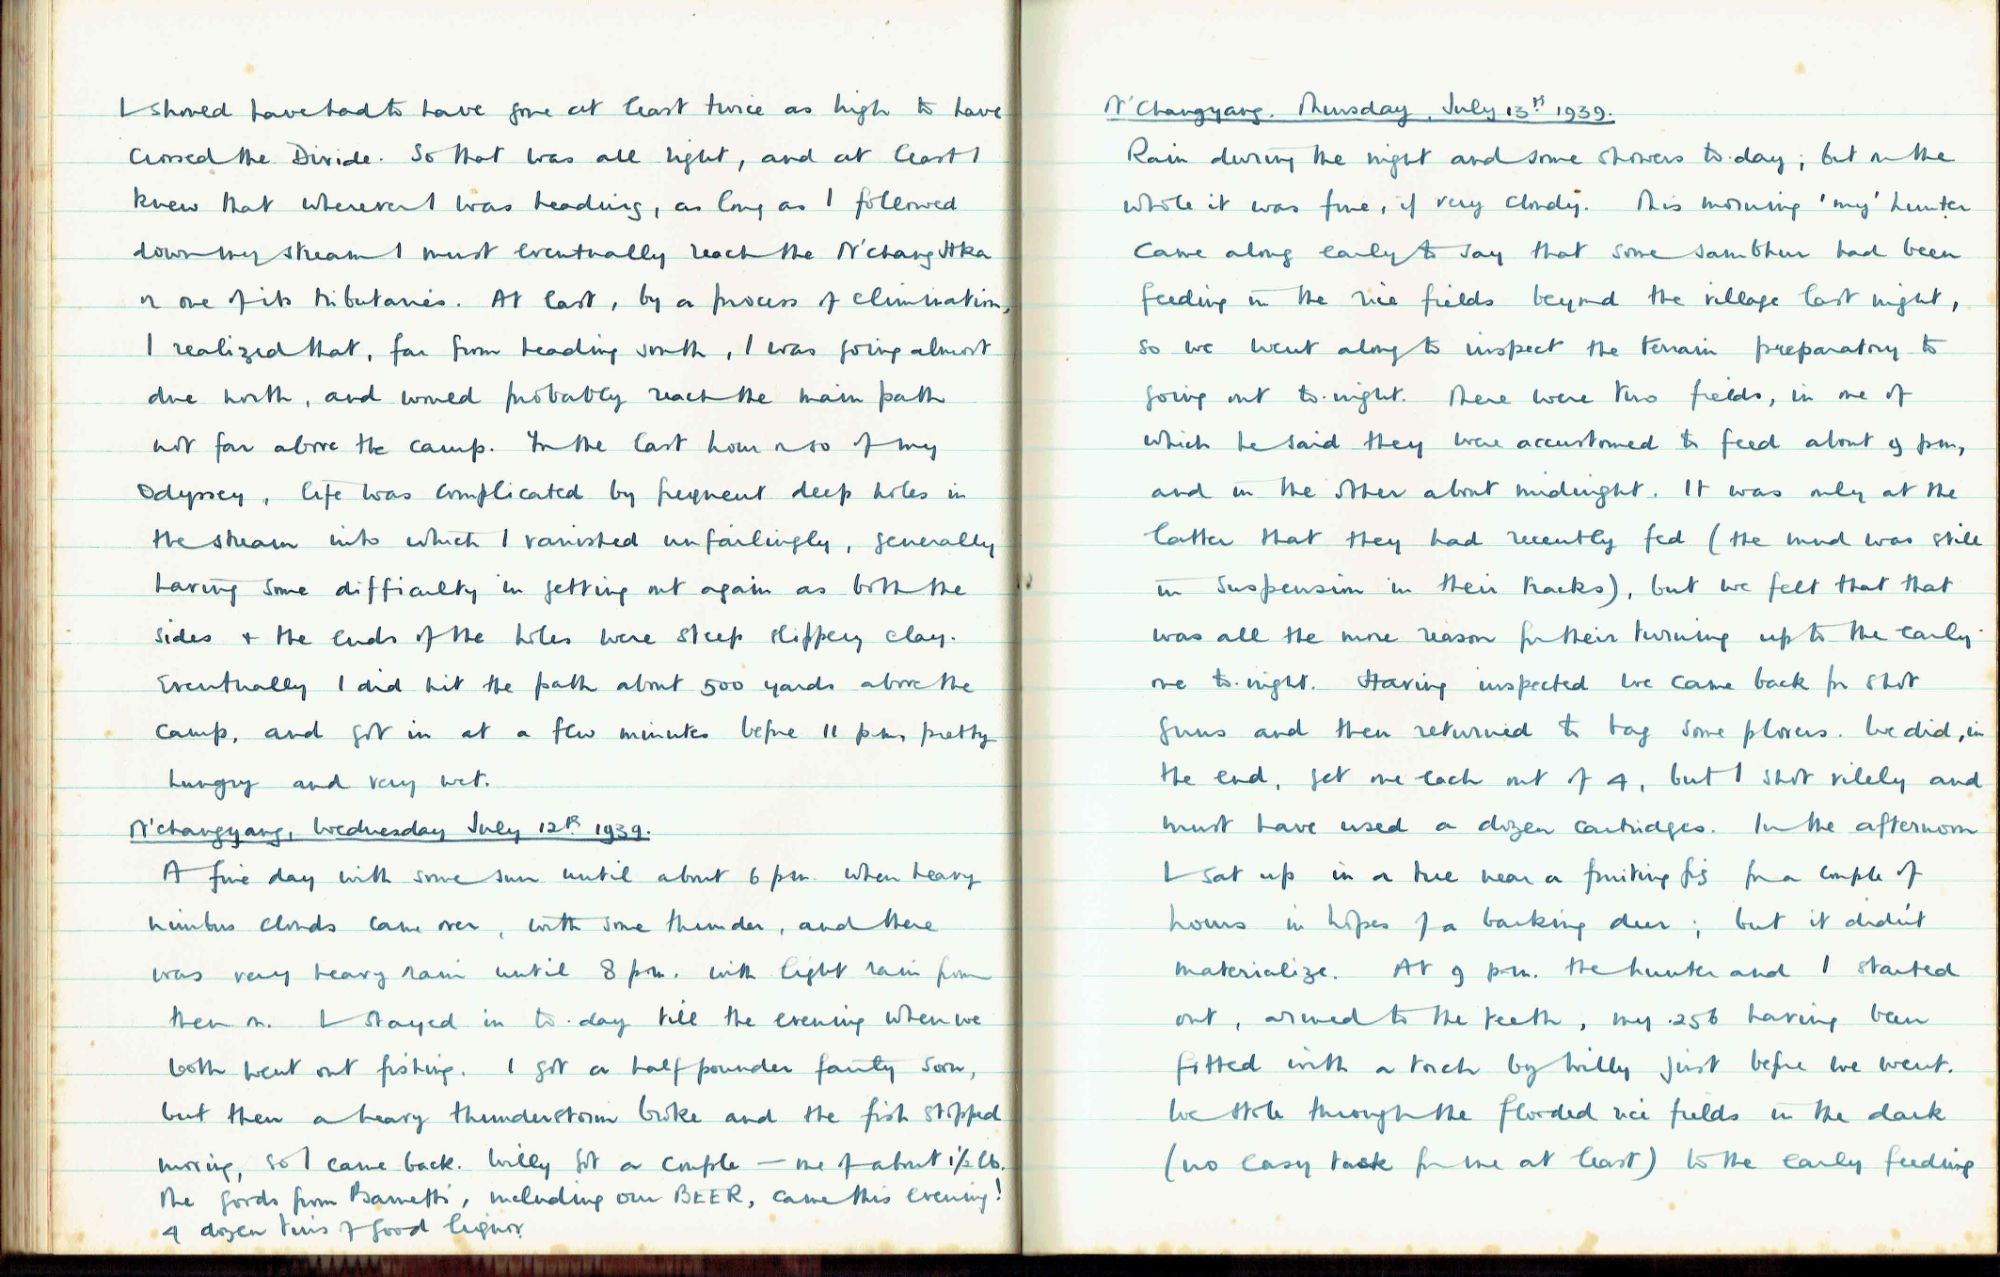 I should have had to have gone at least twice as high to have
crossed the Divide. So that was all right, and at least I
knew that wherever I was heading, as long as I followed
down my stream I must eventually reach the N'Chang Hka
or one of its tributaries. At last, by a process of elimination,
I realized that, far from heading south, I was going almost
due north, and would probably reach the main path
not far above the camp. In the last hour or so of my
Odyssey, life was complicated by frequent deep holes in
the stream into which I vanished unfailingly, generally
having some difficulty in getting out again as both the
sides + the ends of the holes were steep slippery clay.
Eventually I did hit the path about 500 yards above the
camp, and got in at a few minutes before 11 p.m. pretty
hungry and very wet.
N'Changyang, Wednesday July 12th 1939.
A fine day with some sun until about 6 p.m. when heavy
nimbus clouds came over, with some thunder, and there
was very heavy rain until 8 p.m. with light rain from
then on. I stayed in to-day till the evening when we
both went out fishing. I got a half pounder fairly soon,
but then a heavy thunderstorm broke and the fish stopped
moving, so I came back. Willy got a couple — one of about 1½ lb.
The goods from Barnetts', including our BEER, came this evening!
4 dozen tins of good liquor.
N'Changyang. Thursday, July 13th 1939.
Rain during the night and some showers to-day; but on the
whole it was fine, if very cloudy. This morning 'my' hunter
came along early to say that some sambhur had been
feeding in the rice fields beyond the village last night,
so we went along to inspect the terrain preparatory to
going out to-night. There were two fields, in one of
which he said they were accustomed to feed about 9 p.m,
and in the other about midnight. It was only at the
latter that they had recently fed (the mud was still
in suspension in their tracks), but we felt that that
was all the more reason for their turning up to the early
one to-night. Having inspected we came back for shot
guns and then returned to bag some plovers. We did, in
the end, get one each out of 4, but I shot vilely and
must have used a dozen cartridges. In the afternoon
I sat up in a tree near a fruiting fig for a couple of
hours in hopes of a barking deer; but it didn't
materialize. At 9 p.m. the hunter and I started
out, armed to the teeth, my .256 having been
fitted with a torch by Willy just before we went.
We stole through the flooded rice fields in the dark
(no easy task for me at least) to the early feeding